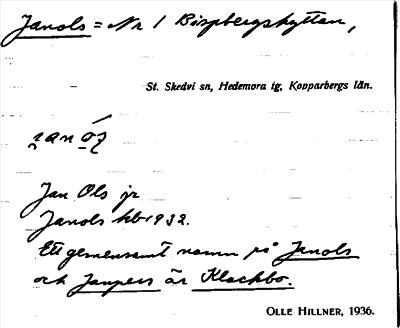 Janols = Nr 1 Bispbergshyttan,
St. Skedvi sn, Hedemora tg, Kopparbergs län.
Jan Ols jr
Janols hb 1932.
Ett gemensamt namn på Janols
och Janpers är Klackbo.
OLLE HILLNER, 1936.